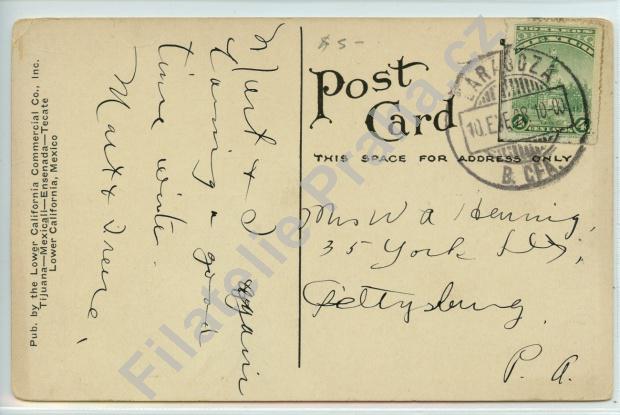 Pub. by the Lower California Commercial Co., Inc.
Tijuana—Mexicali—Ensenada—Tecate
Lower California, Mexico
Mart & I
having a good
time write again
Mart & Irene,
$5-
Post
Card
THIS SPACE FOR ADDRESS ONLY
ZARAGOZA
10.ENE.
B. CFA.
Mrs W A Henning,
35 York St,
Gettysburg,
P. A.
Filatelie-Praha.cz